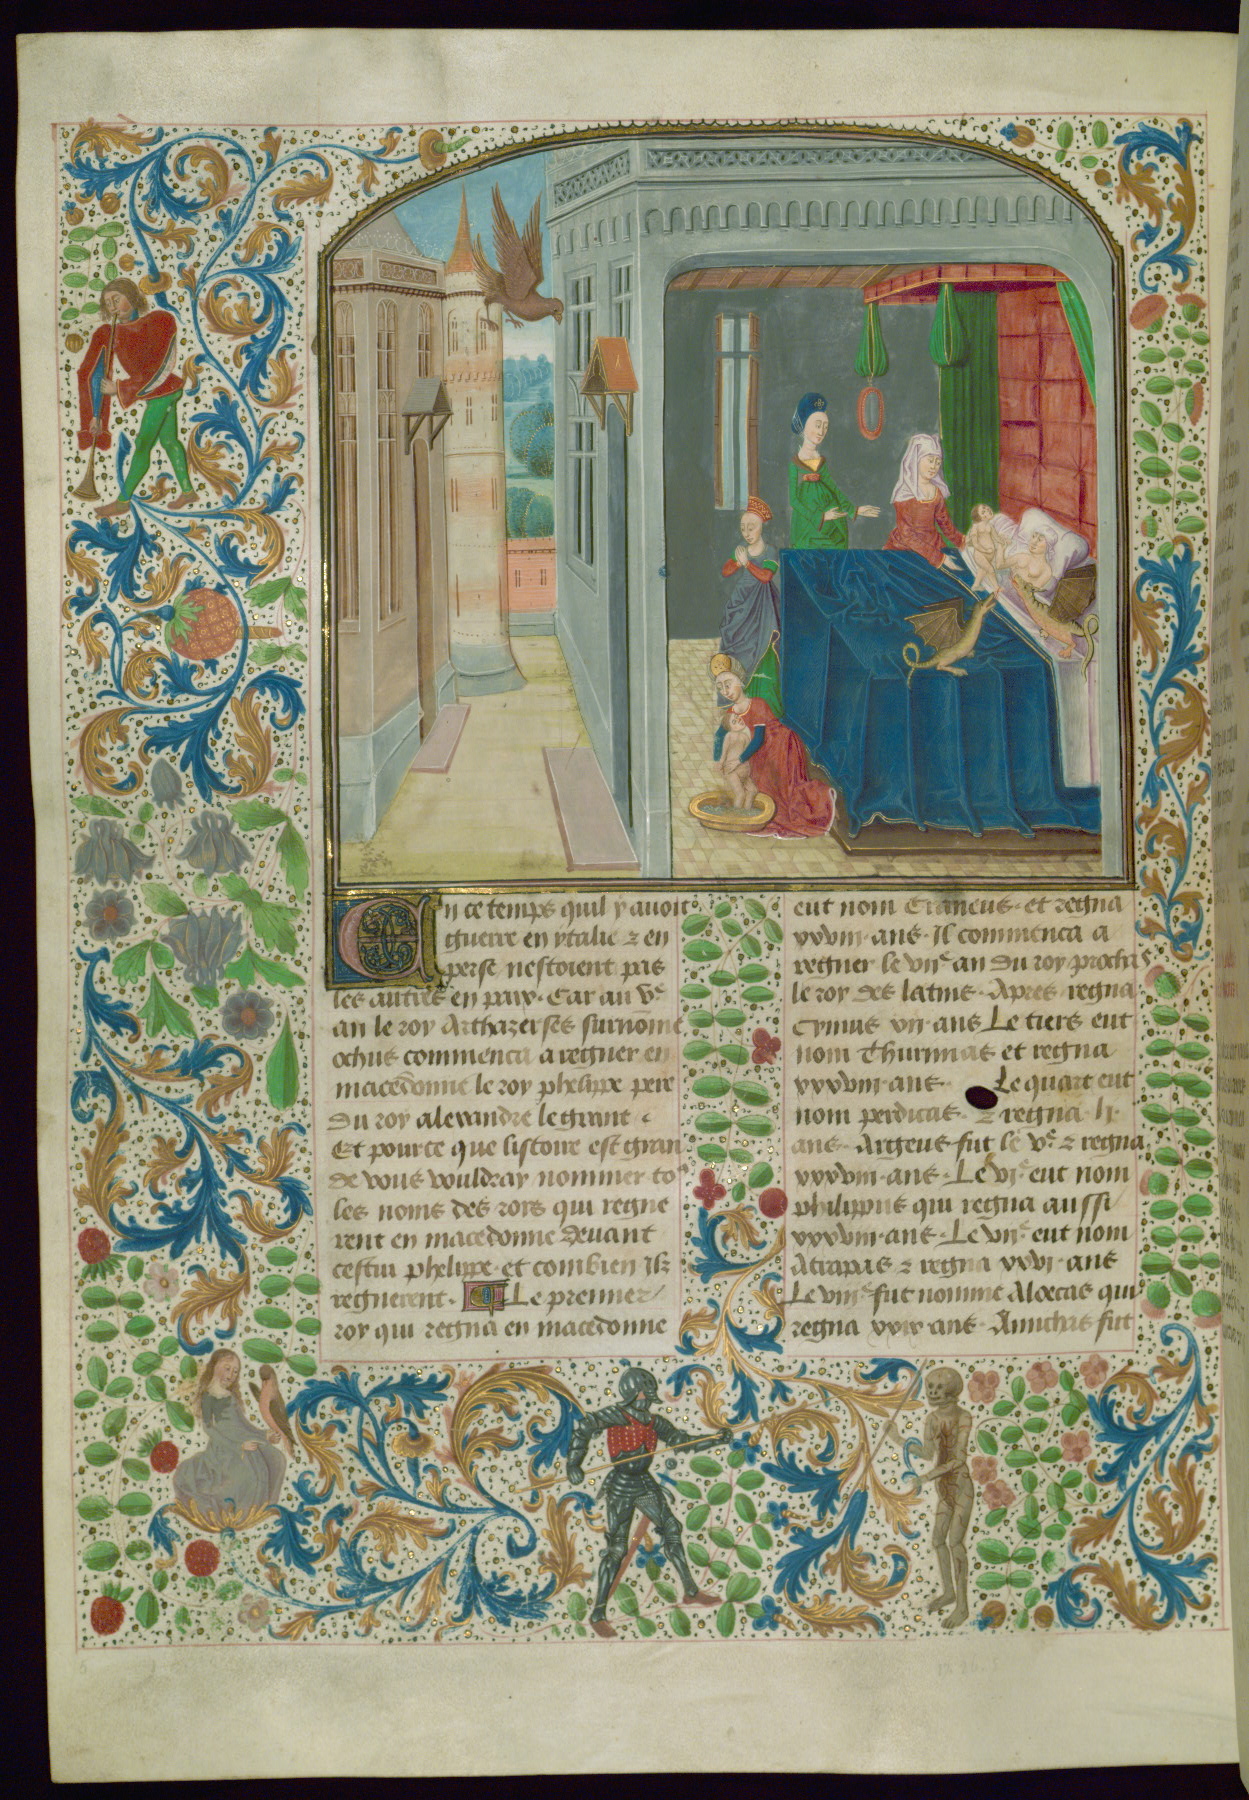 En ce temps quil y auoit
guerre en ytalie ⁊ en
perse nestoient pas
les autres en paix. Car au Ve
an le roy Arthaxerses surnōme
ochus commenca a regner en
macedonne le roy phelippe pere
du roy alexandre le grant
Et pource que listoire est gran
de vous vouldray nommer to9
les noms des roys qui regne
rent en macedonne deuant
cestui phelippe. et combien ilz
regnerent. Le premier
roy qui regna en macedonne
eut nom Craneus. et regna
xxviii. ans. Il commenca a
regner le viie an du roy prochas
le roy des latins. Apres regna
Cynus vii. ans Le tiers eut
nom Thurimas et regna
xxxviii. ans. Le quart eut
nom perdicas. ⁊ regna li.
ans. Argeus fut le Ve ⁊ regna
xxxviii. ans. Le vie eut nom
philippus qui regna aussi
xxxviii. ans. Le viie eut nom
Atrapas ⁊ regna xxvi. ans
Le viiie fut nomme Aloecas qui
regna xxix ans. Amichas fut